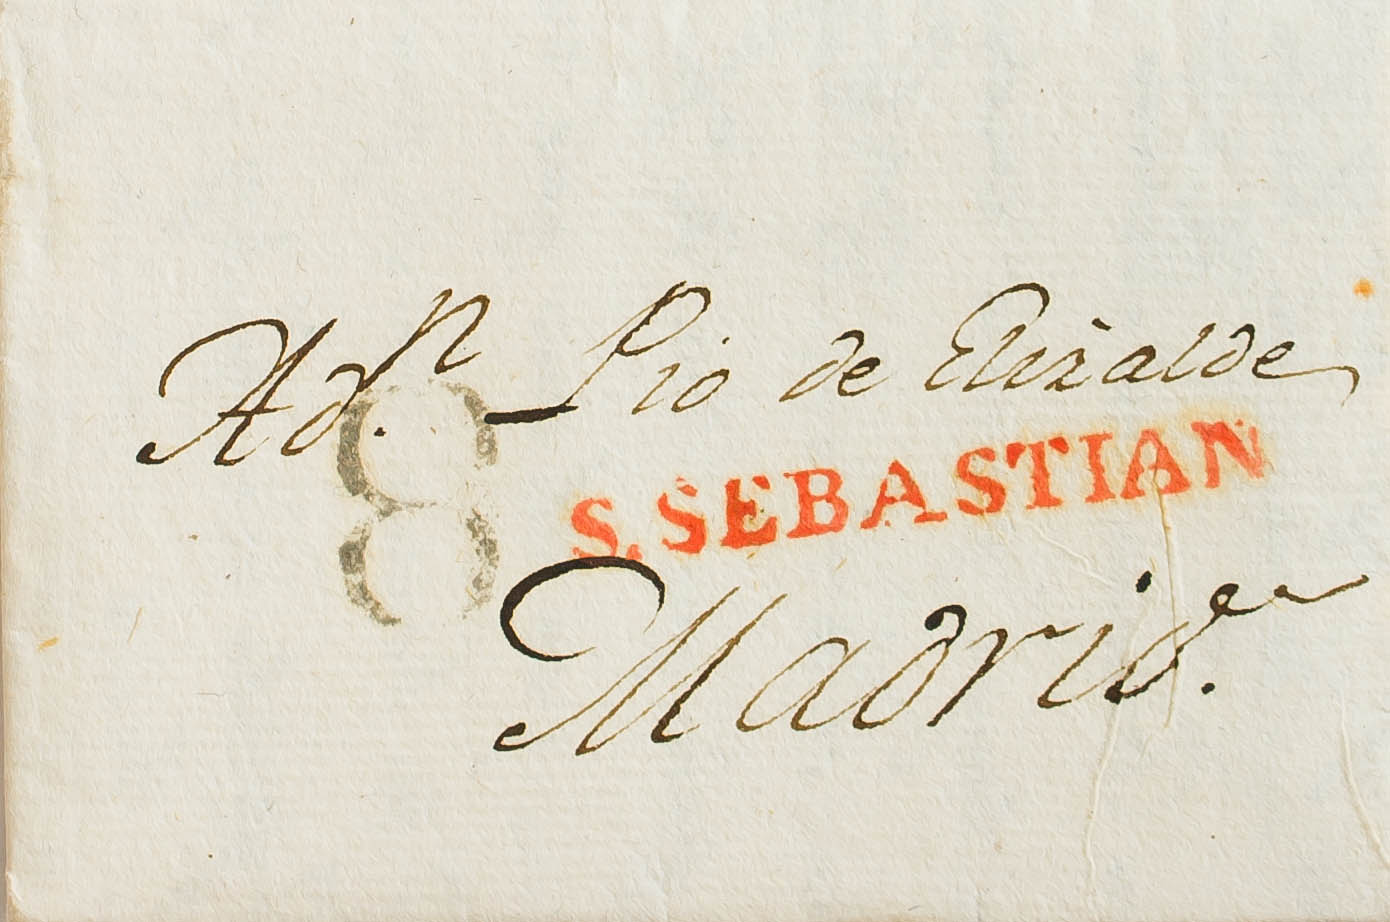 A d.n Pio de Elizalde
8
S. SEBASTIAN
Madrid.